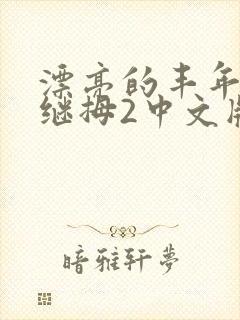 漂亮的丰年
继拇2中文版
暗雅轩夢